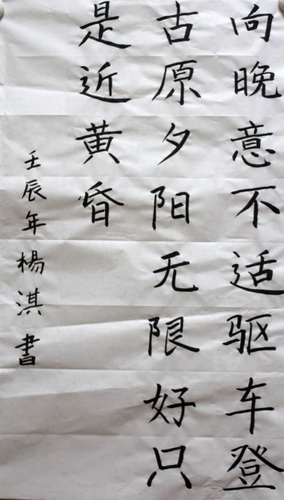 向晚意不适驱车登
古原夕阳无限好只
是近黄昏
壬辰年杨淇書